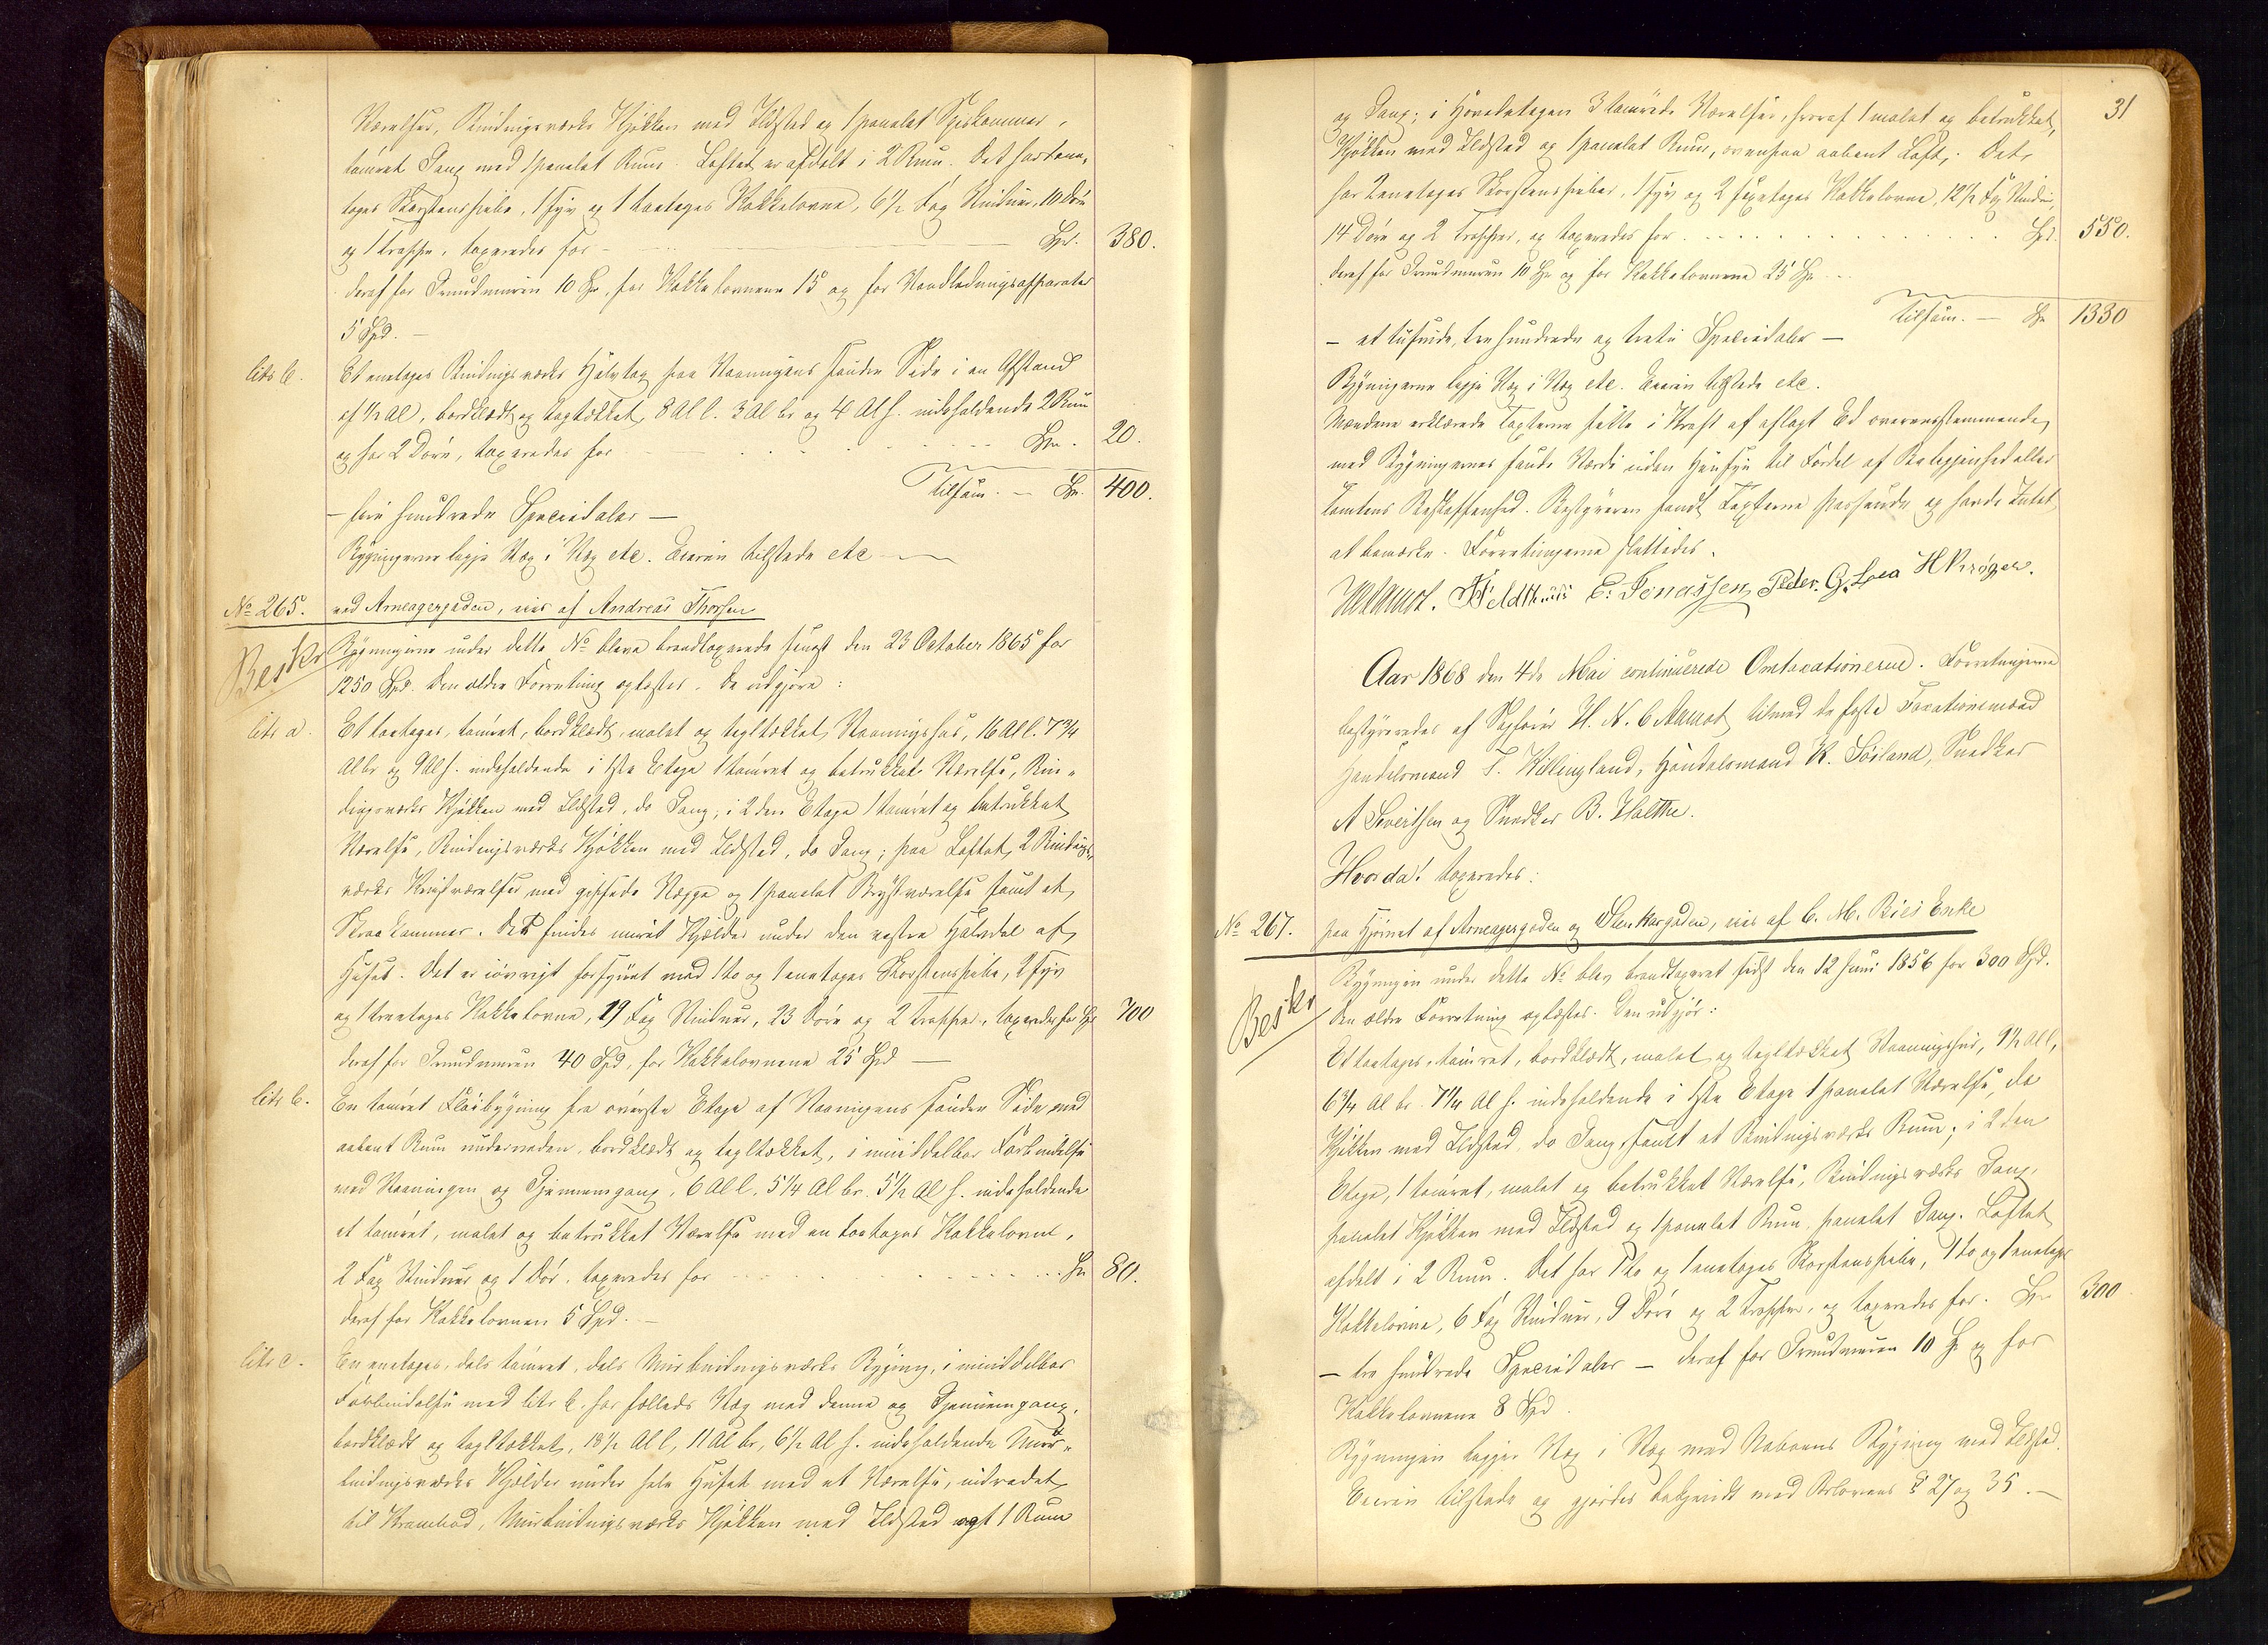 Værelser, Bindingsværks Kjøkken med Ildsted og 1 panelet Spiskammer,
tømret Gang med 1 panelet Rum. Loftet er afdelt i 2 Rum. Det har toe-
tages Skorstenspibe, 1 Fyr og 1 toetages Kakkelovne, 6 1/2 Fag Vinduer, 10 Døre
og 1 Trappe, taxeredes for Spd. 380.
deraf for Grundmuren 10 Spd, for Kakkelovnene 15 og for Vandledningsapparater
5 Spd. —
litr b. Et enetages Bindingsværks Halvtag paa Vaaningens søndre Side i en Afstand
af 1/2 Al, bordklædt og tagtækket, 8 Al l. 3 Al br og 4 Al h. indeholdende 2 Rum
og har 2 Døre, taxeredes for Spd. 20.
Tilsam. — Spd. 400.
— fire hundrede Speciedaler —
Bygningerne ligge Væg i Væg etc. Eieren tilstede etc —
No 265. ved Arneagergaden, eies af Andreas Thorsen
Beskr Bygningerne under dette No bleve brandtaxerede senest den 23 October 1865 for
1250 Spd. Den ældre Forretning oplæstes. De udgjøre:
litr a. Et toetages, tømret, bordklædt, malet og tegltækket Vaaningshus, 16 Al l. 7 3/4
Al br og 9 Al h. indeholdende i 1ste Etage 1 tømret og betrukket Værelse, Bin-
dingsværks Kjøkken med Ildsted, do Gang; i 2den Etage 1 tømret og betrukket
Værelse, Bindingsværks Kjøkken med Ildsted, do Gang; paa Loftet 2 Bindings-
værks Kvistværelser med gipsede Vægge og 1 panelet Brystværelse samt et
Skraakammer. Det findes muret Kjælder under den vestre Halvdel af
Huset. Det er iøvrigt forsynet med 1 to og 1 enetages Skorstenspibe, 2 Fyr
og 1 treetages Kakkelovne, 19 Fag Vinduer, 23 Døre og 2 Trapper, taxeredes for Spd 700
deraf for Grundmuren 40 Spd, for Kakkelovnene 25 Spd —
litr b. En tømret Fløibygning fra øverste Etage af Vaaningens søndre Side, med
aabent Rum undermeden, bordklædt og tegltækket, i umiddelbar Forbindelse
med Vaaningen og Gjennemgang, 6 Al l. 5 1/4 Al br. 5 1/2 Al h. indeholdende
et tømret, malet og betrukket Værelse med en toetages Kakkelovn,
2 Fag Vinduer og 1 Dør, taxeredes for Spd 80.
deraf for Kakkelovnen 5 Spd. —
litr c. En enetages, dels tømret, dels Murbindingsværks Bygning, i umiddelbar
Forbindelse med litr b. har fælleds Væg med denne og Gjennemgang,
bordklædt og tegltækket, 18 1/2 Al l, 11 Al br, 6 1/2 Al h. indeholdende Mur-
bindingsværks Kjælder under hele Huset med et Værelse, indredet
til Krambod, Murbindingsværks Kjøkken med Ildsted og 1 Rum
31
og Gang; i Hovedetagen 3 tømrede Værelser, hvoraf 1 malet og betrukket,
Kjøkken med Ildsted og 1 panelet Rum, ovenpaa aabent Loft. Det
har 2 enetages Skorstenspiber, 1 Fyr og 2 toetages Kakkelovne, 12 1/2 Fag Vinduer,
14 Døre og 2 Trapper, og taxeredes for Spd. 550.
deraf for Grundmuren 10 Spd og for Kakkelovnene 25 Spd
Tilsam. — Spd 1330
— et tusinde, tre hundrede og treti Speciedaler —
Bygningerne ligge Væg i Væg etc. Eieren tilstede etc.
Mændene erklærede Taxterne satte i Kraft af aflagt Ed overensstemmende
med Bygningernes sande Værdi uden Hensyn til Fordel af Beliggenhed eller
Tomtens Beskaffenhed. Bestyreren fandt Taxterne passende og havde Intet
at bemærke. Forretningerne sluttedes.
Aamot. Feldthuus E. Jonassen Peder. G. Lea H Krøger.
Aar 1868 den 4de Mai continuerede Omtaxationerne. Forretningerne
bestyreredes af Sagfører H. N. C Aamot tilmed de faste Taxationsmænd
Handelsmand T. Willingland, Handelsmand K. Sørland, Snedker
A Sivertsen og Snedker B. Holthe.
Hvorda! taxeredes:
No 267. paa Hjørnet af Arneagergaden og Stenkargaden, eies af C. M. Bies Enke
Beskr Bygningen under dette No blev brandtaxeret sidst den 12 Juni 1856 for 300 Spd.
Den ældre Forretning oplæstes. Den udgjør:
Et toetages, tømret, bordklædt, malet og tegltækket Vaaningshus, 9 1/2 Al l,
6 3/4 Al br. 7 1/4 Al h. indeholdende i 1ste Etage 1 panelet Værelse, do
Kjøkken med Ildsted, do Gang, samt et Bindingsværks Rum; i 2den
Etage, 1 tømret, malet og betrukket Værelse, Bindingsværks Gang,
panelet Kjøkken med Ildsted og 1 panelet Rum, panelet Gang. Loftet
afdelt i 2 Rum. Det har 1 to og 1 enetages Skorstenspibe, 1 to og 1 enetages
Kakkelovne, 6 Fag Vinduer, 9 Døre og 2 Trapper, og taxeredes for. Spd 300
— tre hundrede Speciedaler — deraf for Grundmuren 10 Spd og for
Kakkelovnene 8 Spd.
Bygningen ligger Væg i Væg med Naboens Bygning med Ildsted.
Eieren tilstede og gjordes bekjendt med Brlovens § 27 og 35. —